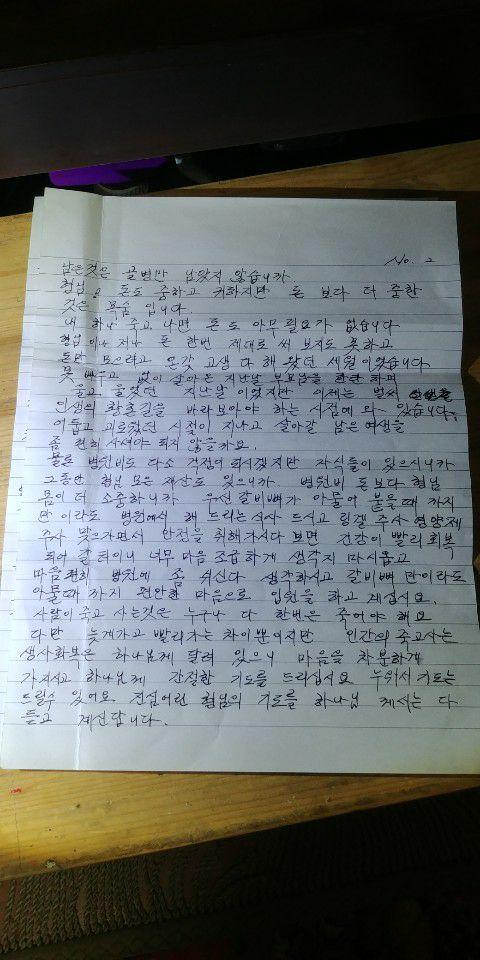 No. 2
남은것은 골병만 남았지 않습니까
형님, 돈도 중하고 귀하지만 돈 보다 더 중한
것은 목숨 입니다
내 하나 죽고 나면 돈도 아무 필요가 없습니다
형님 이나 저나 돈 한번 제대로 써 보지도 못하고
돈만 모으라고 온갖 고생 다 해 왔던 세월이었습니다
못 배우고 없이 살아온 지난날 부모님을 하며
울고 울었던 지난날 이였지만 이제는 벌써
인생의 황혼길을 바라보아야 하는 시점에 와 있습니다.
어둡고 괴로웠던 시절이 지나고 살아갈 남은여생을
좀 편히 사셔야 되지 않을까요.
물론 병원비도 다소 걱정이 되시겠지만 자식들이 있으시니까
그동안 형님 모은 재산도 있으니까 병원비 도 보다 형님
몸이 더 소중하니까 우선 갈비뼈가 아물어 붙을때 까지
만 이라도 병원에서 해 드리는 식사 드시고 링겔 주사 영양제
주사 맞으가면서 안정을 취해가시다 보면 건강이 빨리 회복
되어 갈 터이니 너무 마음 조급하게 생각지 마시옵고
마음편히 병원에 좀 쉬신다 생각하시고 갈비뼈 만이라도
아물때 까지 편안한 마음으로 입원을 하고 계십시요.
사람이 죽고 사는것은 누구나 다 한번은 죽어야 해요
다만 늦게가고 빨리가는 차이뿐이지만 인간의 죽고사는
생사화복은 하나님께 달려 있으니 마음을 차분하게
가지시고 하나님께 간절한 기도를 드리십시요 누워서 기도는
드릴수 있어요 진심어린 형님의 기도를 하나님 께서는 다
듣고 계신답니다.